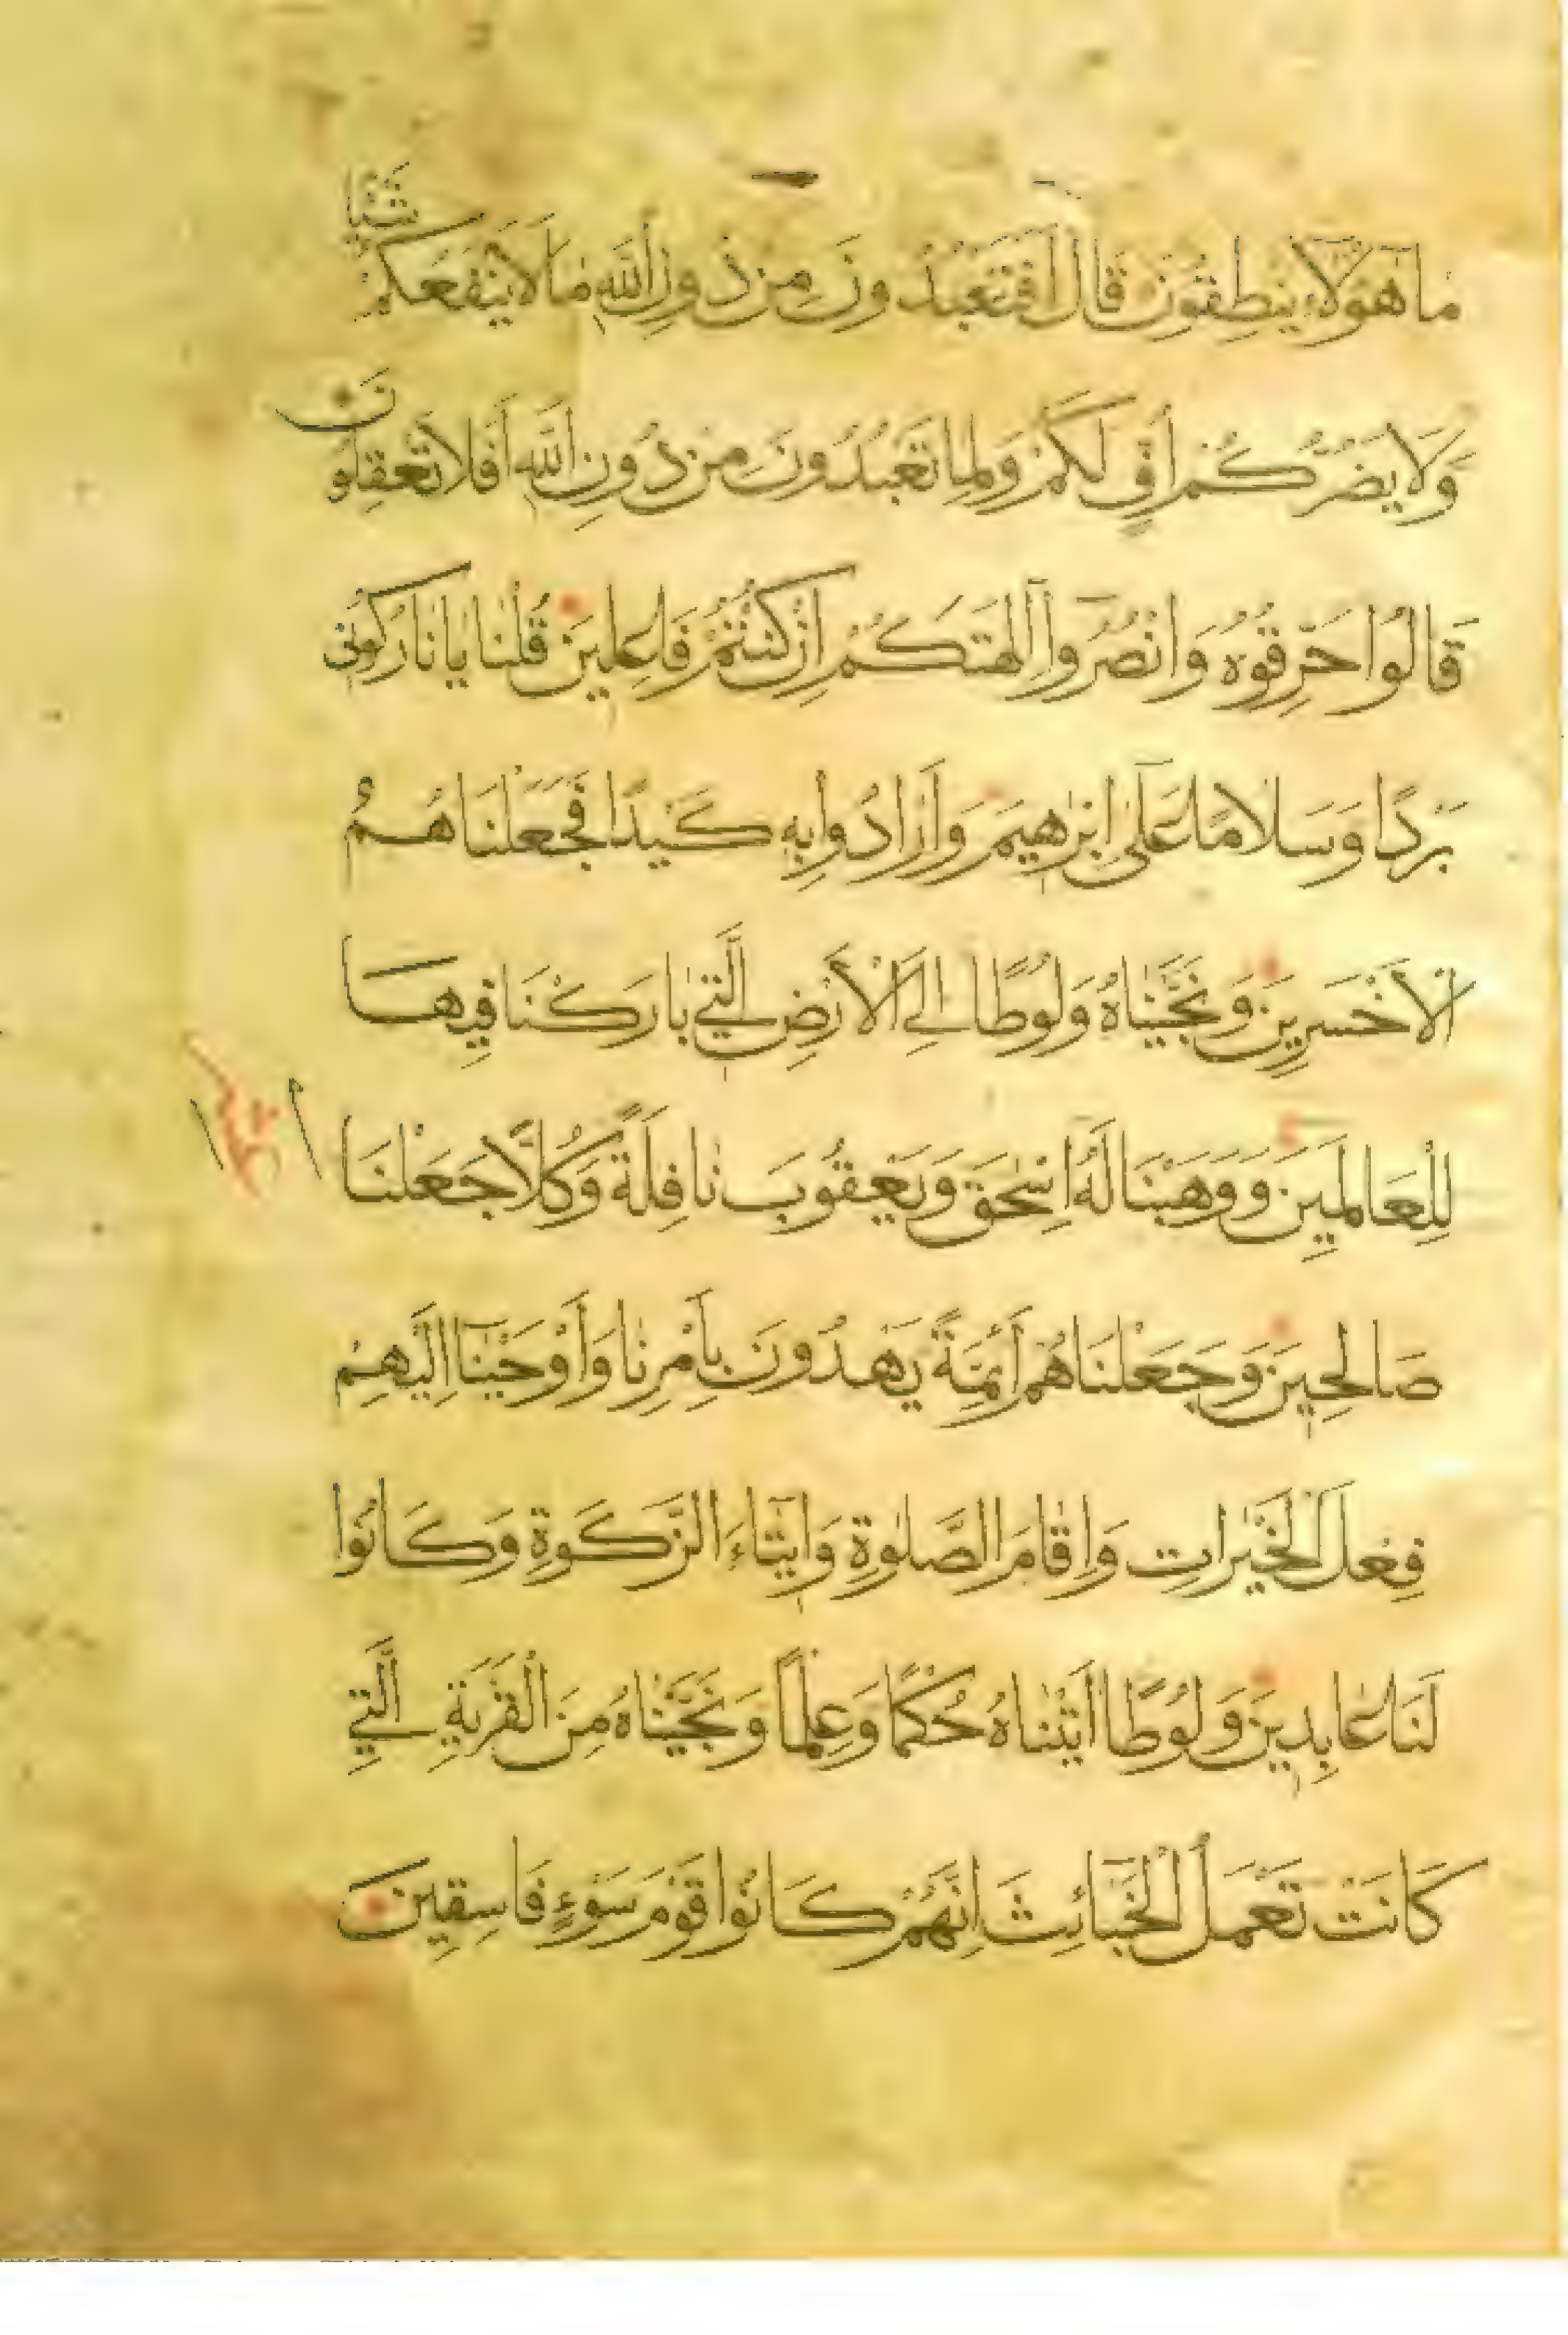 مَا هَؤُلَاءِ يَنْطِقُونَ قَالَ أَفَتَعْبُدُونَ مِنْ دُونِ اللَّهِ مَا لَا يَنْفَعُكُمْ شَيْئًا
وَلَا يَضُرُّكُمْ أُفٍّ لَكُمْ وَلِمَا تَعْبُدُونَ مِنْ دُونِ اللَّهِ أَفَلَا تَعْقِلُونَ
قَالُوا حَرِّقُوهُ وَانْصُرُوا آلِهَتَكُمْ إِنْ كُنْتُمْ فَاعِلِينَ قُلْنَا يَا نَارُ كُونِي
بَرْدًا وَسَلَامًا عَلَى إِبْرَهِيمَ وَأَرَادُوا بِهِ كَيْدًا فَجَعَلْنَاهُمُ
الْأَخْسَرِينَ وَنَجَّيْنَاهُ وَلُوطًا إِلَى الْأَرْضِ الَّتِي بَارَكْنَا فِيهَا
لِلْعَالَمِينَ وَوَهَبْنَا لَهُ إِسْحَقَ وَيَعْقُوبَ نَافِلَةً وَكُلًّا جَعَلْنَا
صَالِحِينَ وَجَعَلْنَاهُمْ أَئِمَّةً يَهْدُونَ بِأَمْرِنَا وَأَوْحَيْنَا إِلَيْهِمْ
فِعْلَ الْخَيْرَاتِ وَإِقَامَ الصَّلٰوةِ وَإِيتَاءَ الزَّكَوةِ وَكَانُوا
لَنَا عَابِدِينَ وَلُوطًا آتَيْنَاهُ حُكْمًا وَعِلْمًا وَنَجَّيْنَاهُ مِنَ الْقَرْيَةِ الَّتِي
كَانَتْ تَعْمَلُ الْخَبَائِثَ إِنَّهُمْ كَانُوا قَوْمَ سَوْءٍ فَاسِقِينَ